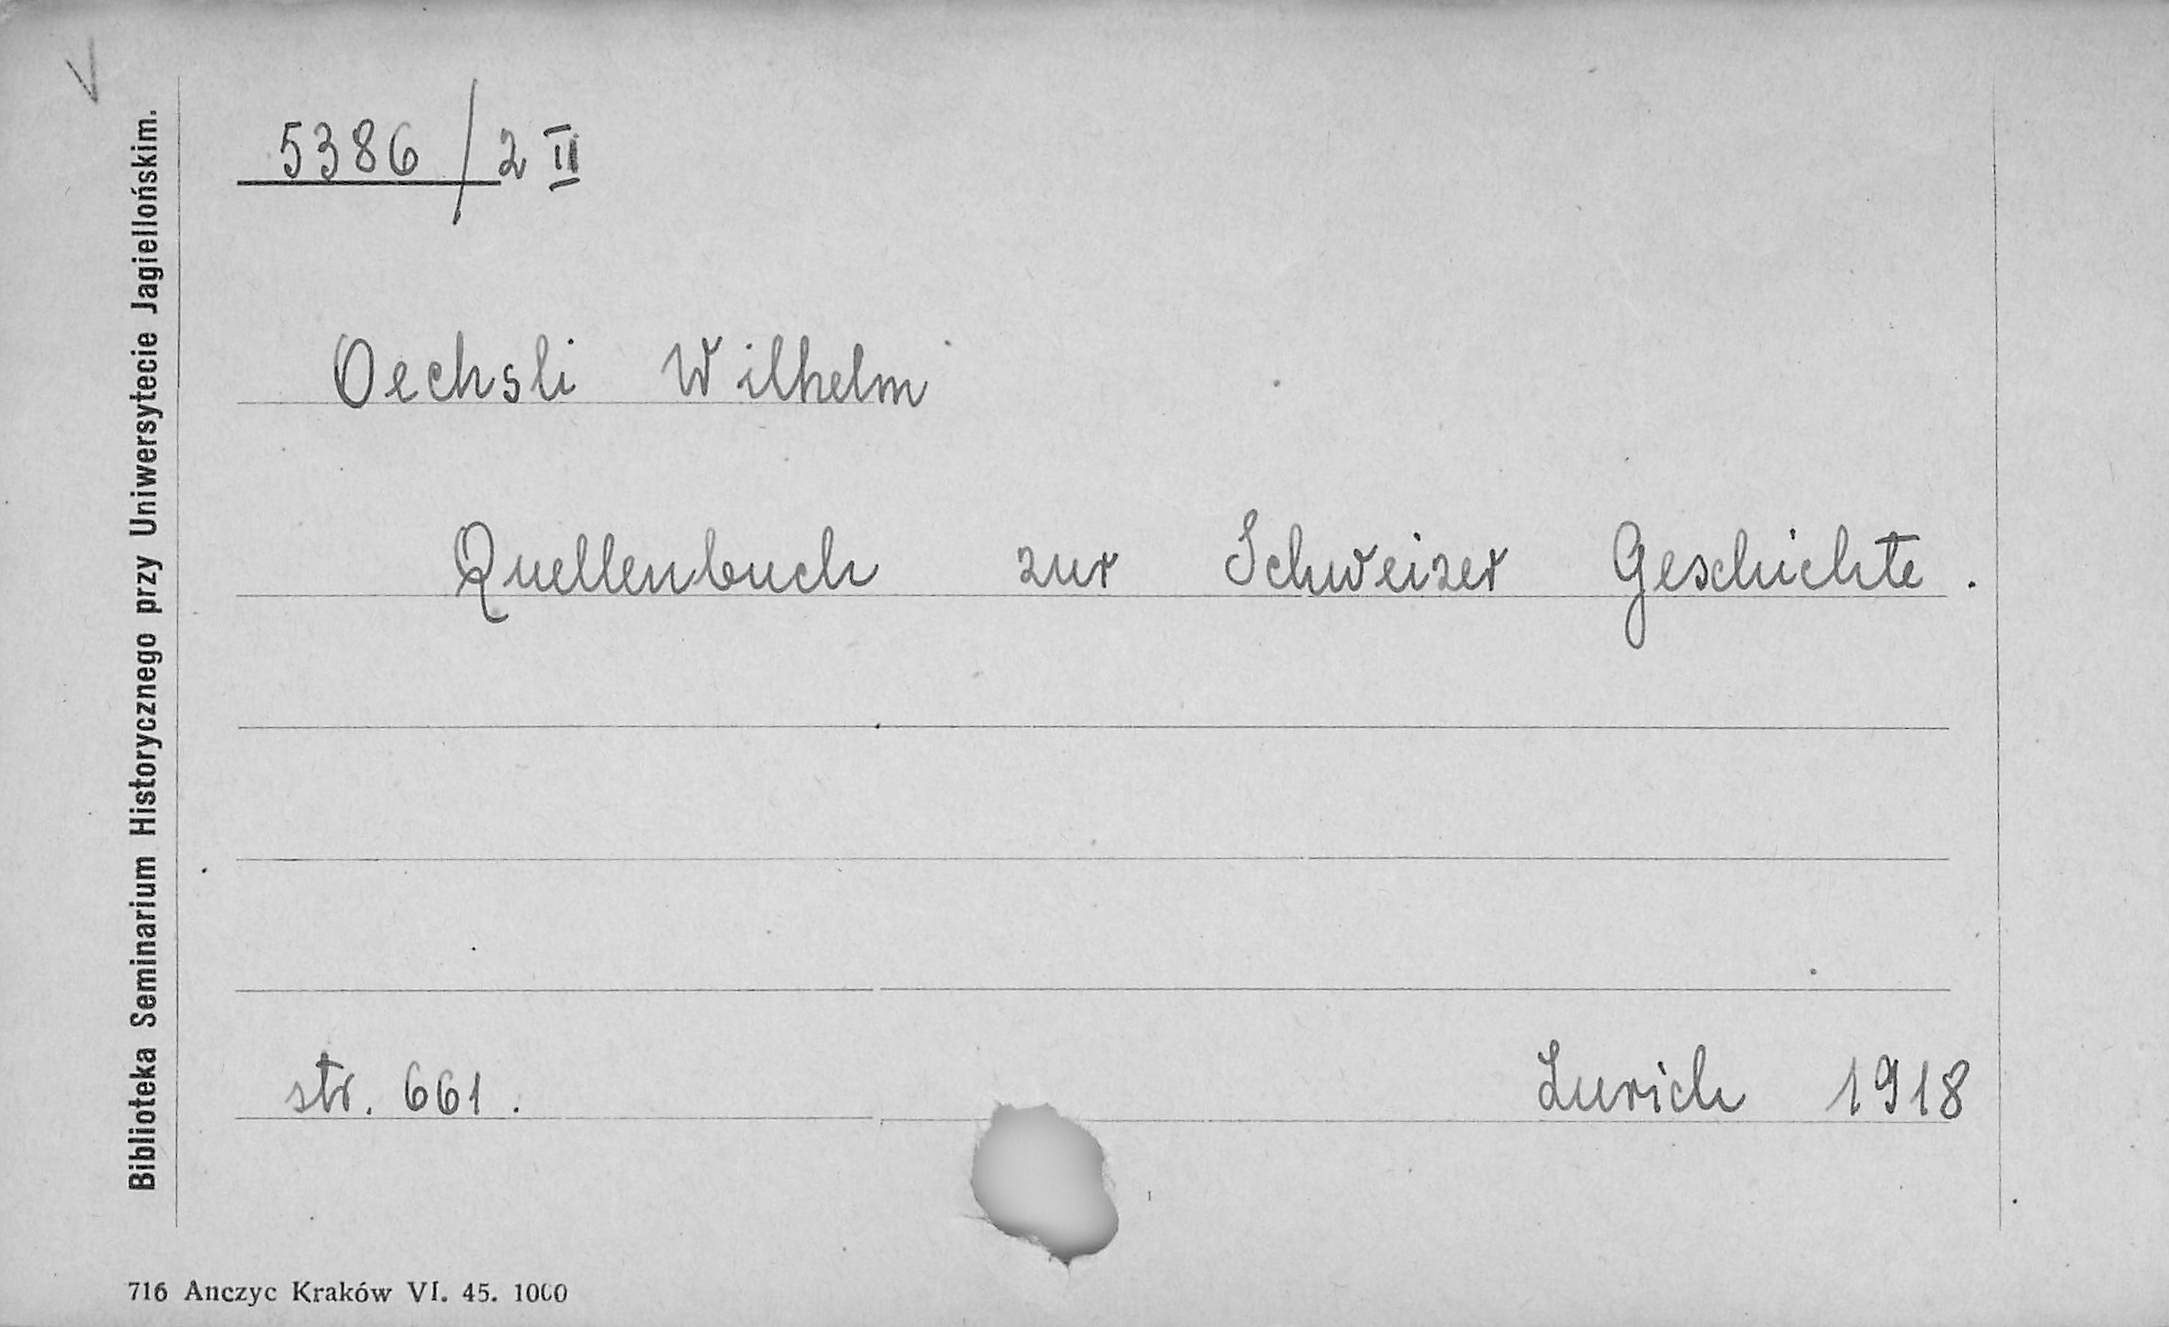 5386/2 II
Oechsli Wilhelm
Quellenbuch zur Schweizer Geschichte.
str. 661.
Zurich 1918
Biblioteka Seminarium Historycznego przy Uniwersytecie Jagiellońskim.
716 Anczyc Kraków VI. 45. 1000